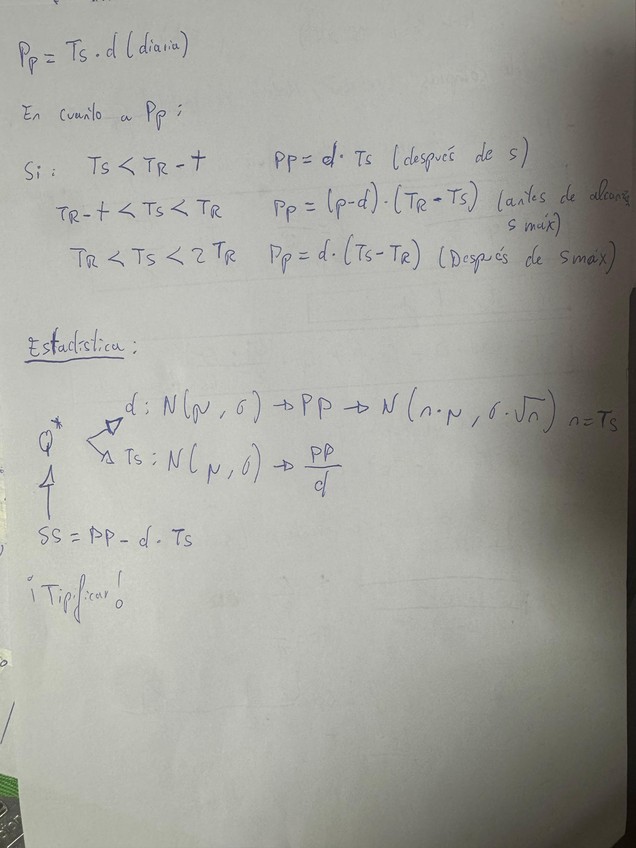 Pp = Ts · d (diaria)
En cuanto a Pp :
Si : Ts < TR - t PP = d · Ts (después de s)
TR - t < Ts < TR Pp = (p-d) · (TR - Ts) (antes de
s máx)
TR < Ts < 2 TR Pp = d · (Ts - TR) (Después de s máx)
Estadística :
d : N(μ, σ) → PP → N(n·μ, σ·√n) n = Ts
Q*
Ts : N(μ, σ) → PP/d
SS = PP - d · Ts
¡Tipificar!